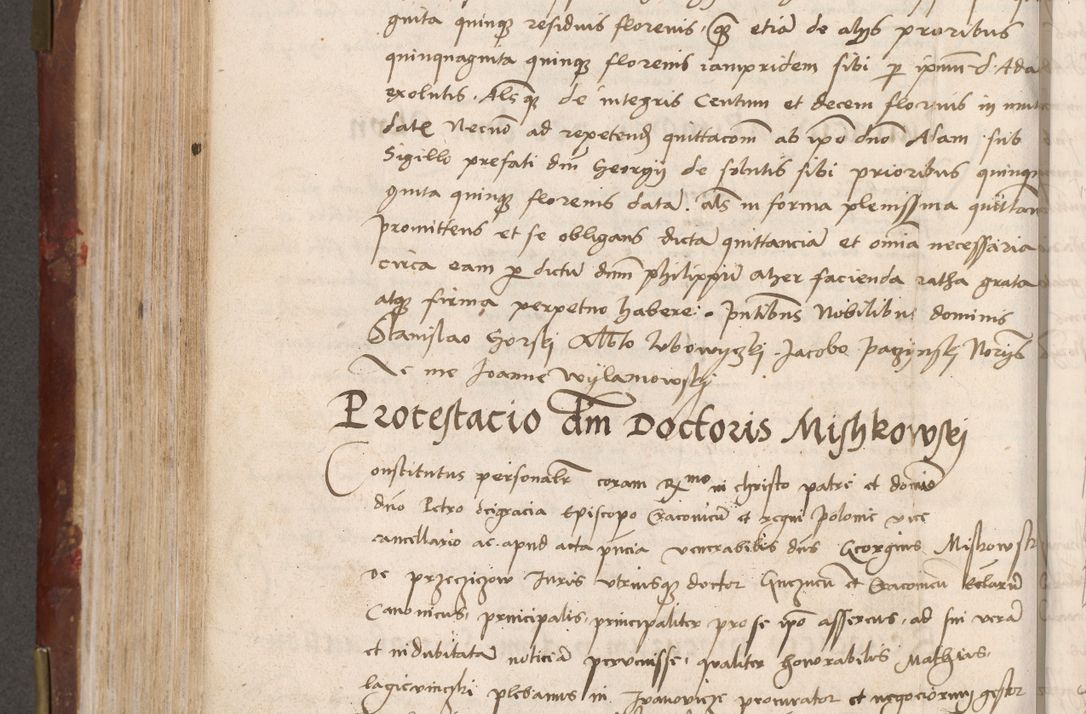 gnita quinq residuis florenis, qm etia de alys proribus
quinquagnita quinq florenis iampridem sibi p ipmm d. Ada
exolutis. Alsq de integris Centum et decem florenis in
date Necno ad repetend quittacom ab ipo dno Adam sub
Sigillo prefati dni Georgii de solutis sibi prioribus quinqu
gnita quinq florenis data. als in forma plenissima quittan
promittens et se obligans dicta quittancia et omia necessaria
circa eam p dictu dnm philippu alher facienda ratha grata
atq firma perpetuo habere. Pntibus Nobilibus dominis
Stanislao Gorski Albto Lubowyczki. Jacobo paczynski Noriis
Te me Joanne Wylamowsky
Protestacio dni Doctoris Mishkowskj
Constitutus personalr coram Rmo in christo patre et domio
dno Petro deigracia Episcopo Cracovien et regni polonie vice
cancellario ac apud acta pncia venerabilis dns Georgius Mishowski
de przeczizow Juris utriusq doctor Gneznen et Cracovien Ecclaru
Canonicus, principalis, principaliter pro se ipo assercus, ad sui vera
et indubitata noticia pervenisse, qualiter honorabilis Mathias
lagiewniczki plebanus in Iwanovicze procurator et negociorum gestor